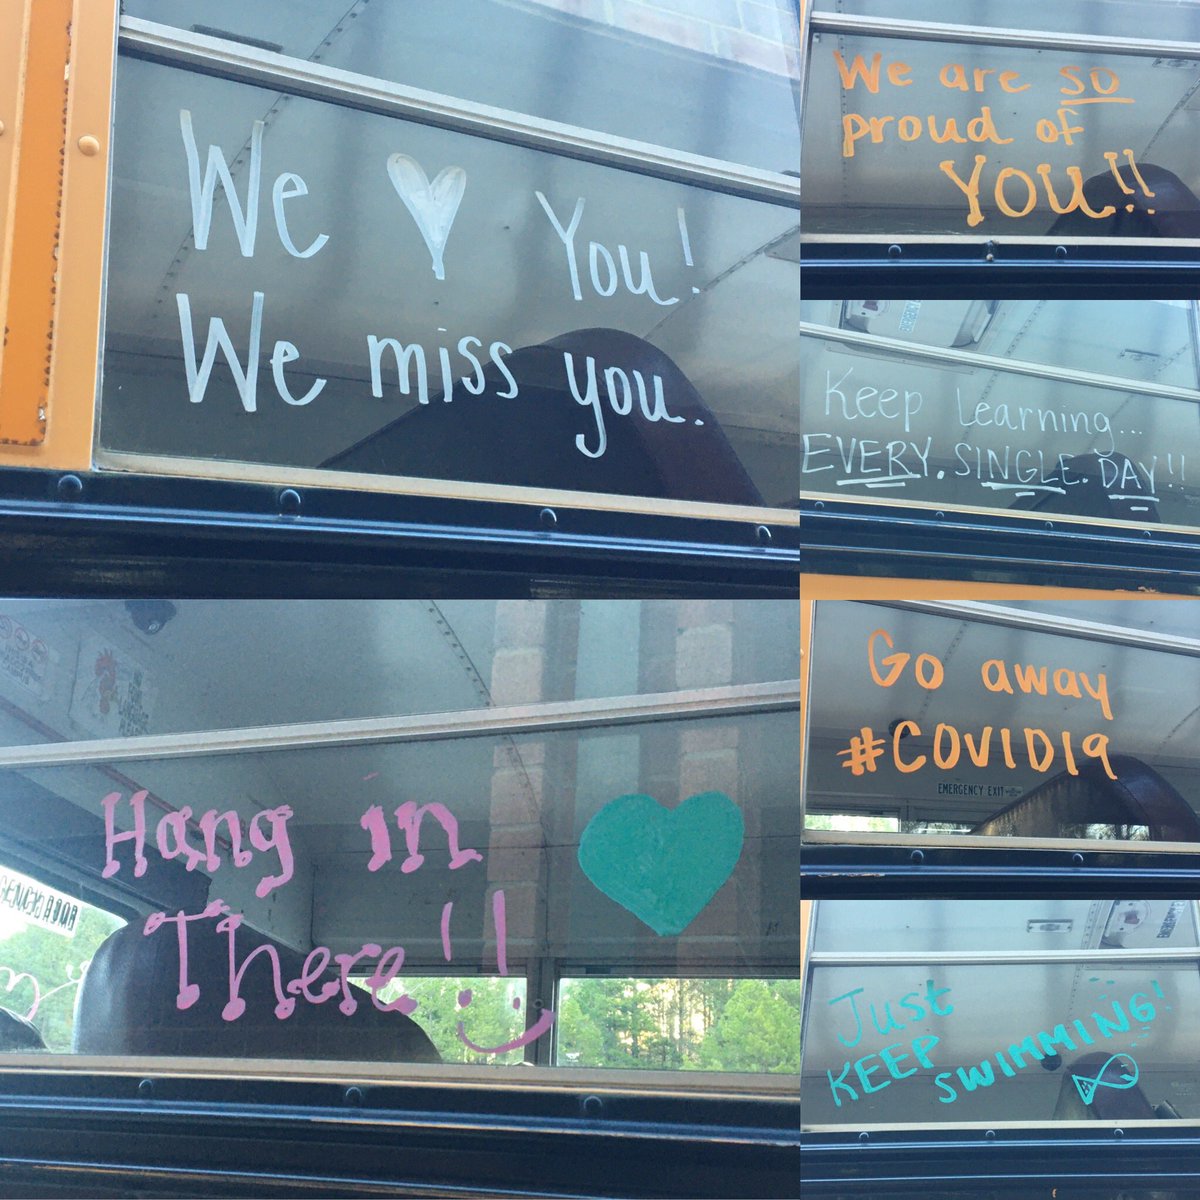 We ♥ You!
We miss you.
We are so
proud of
YOU!!
Keep Learning...
EVERY. SINGLE. DAY!!
Hang in
There!!
Go away
#COVID19
EMERGENCY EXIT
Just
KEEP
SWIMMING!